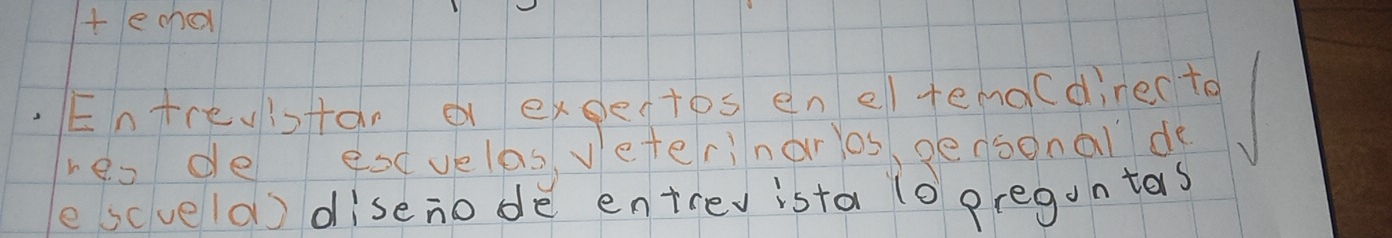 tema
. Entrevistar a expertos en el tema(directo
res de escuelas, veterinarios, personal de
escuela) diseño de entrevista 10 preguntas